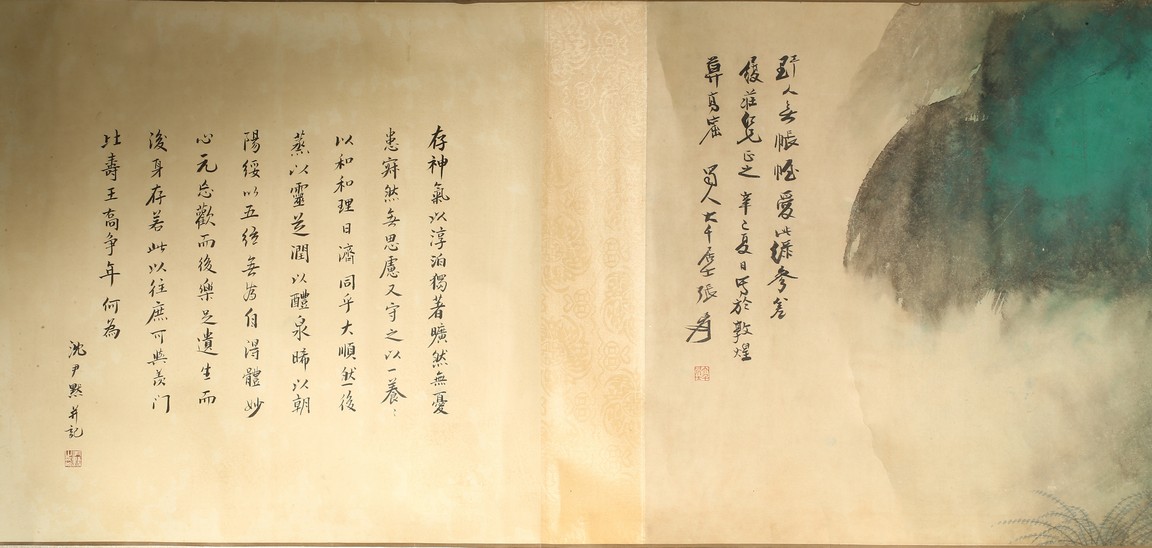 野人無帳幄愛此緑參差
莊兄正之辛巳夏日寫於敦煌
莫高窟 蜀人大千居士張爰
存神氣以淳泊獨著曠然無憂
患寂然無思慮又守之以一養〻
以和和理日濟同乎大順然後
蒸以靈芝潤以醴泉晞以朝
陽綏以五絃無為自得體妙
心元忘歡而後樂足遺生而
後身存若此以往庶可與羨门
比壽王高争年何為
沈尹默并記